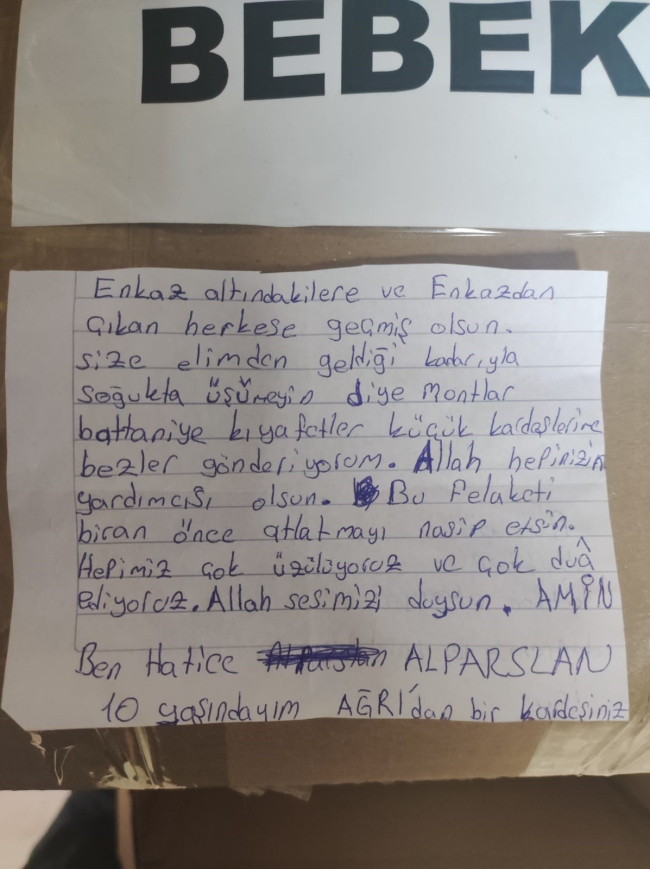 BEBEK
Enkaz altındakilere ve Enkazdan
Çıkan herkese geçmiş olsun.
size elimden geldiği kadarıyla
soğukta üşümeyin diye montlar
battaniye kıyafetler küçük kardeşlerime
bezler gönderiyorum. Allah hepinizin
yardımcısı olsun. Bu Felaketi
biran önce atlatmayı nasip etsin.
Hepimiz çok üzülüyoruz ve çok duâ
ediyoruz. Allah sesimizi duysun. AMİN
Ben Hatice ALPARSLAN
10 yaşındayım AĞRI'dan bir kardeşiniz